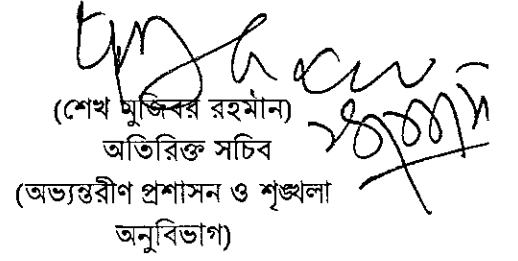 (শেখ মুজিবর রহমান)
অতিরিক্ত সচিব
(অভ্যন্তরীণ প্রশাসন ও শৃঙ্খলা
অনুবিভাগ)